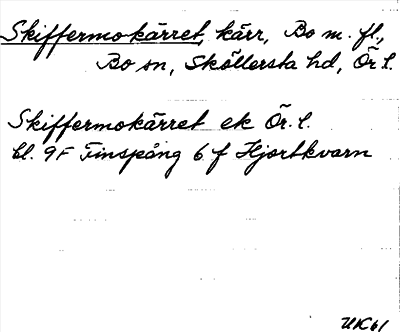 Skiffermokärret, kärr, Bo m. fl.,
Bo sn, Sköllersta hd, Ör l.
Skiffermokärret ek Ör. l.
bl. 9F Finspång 6 f Hjortkvarn
UK61